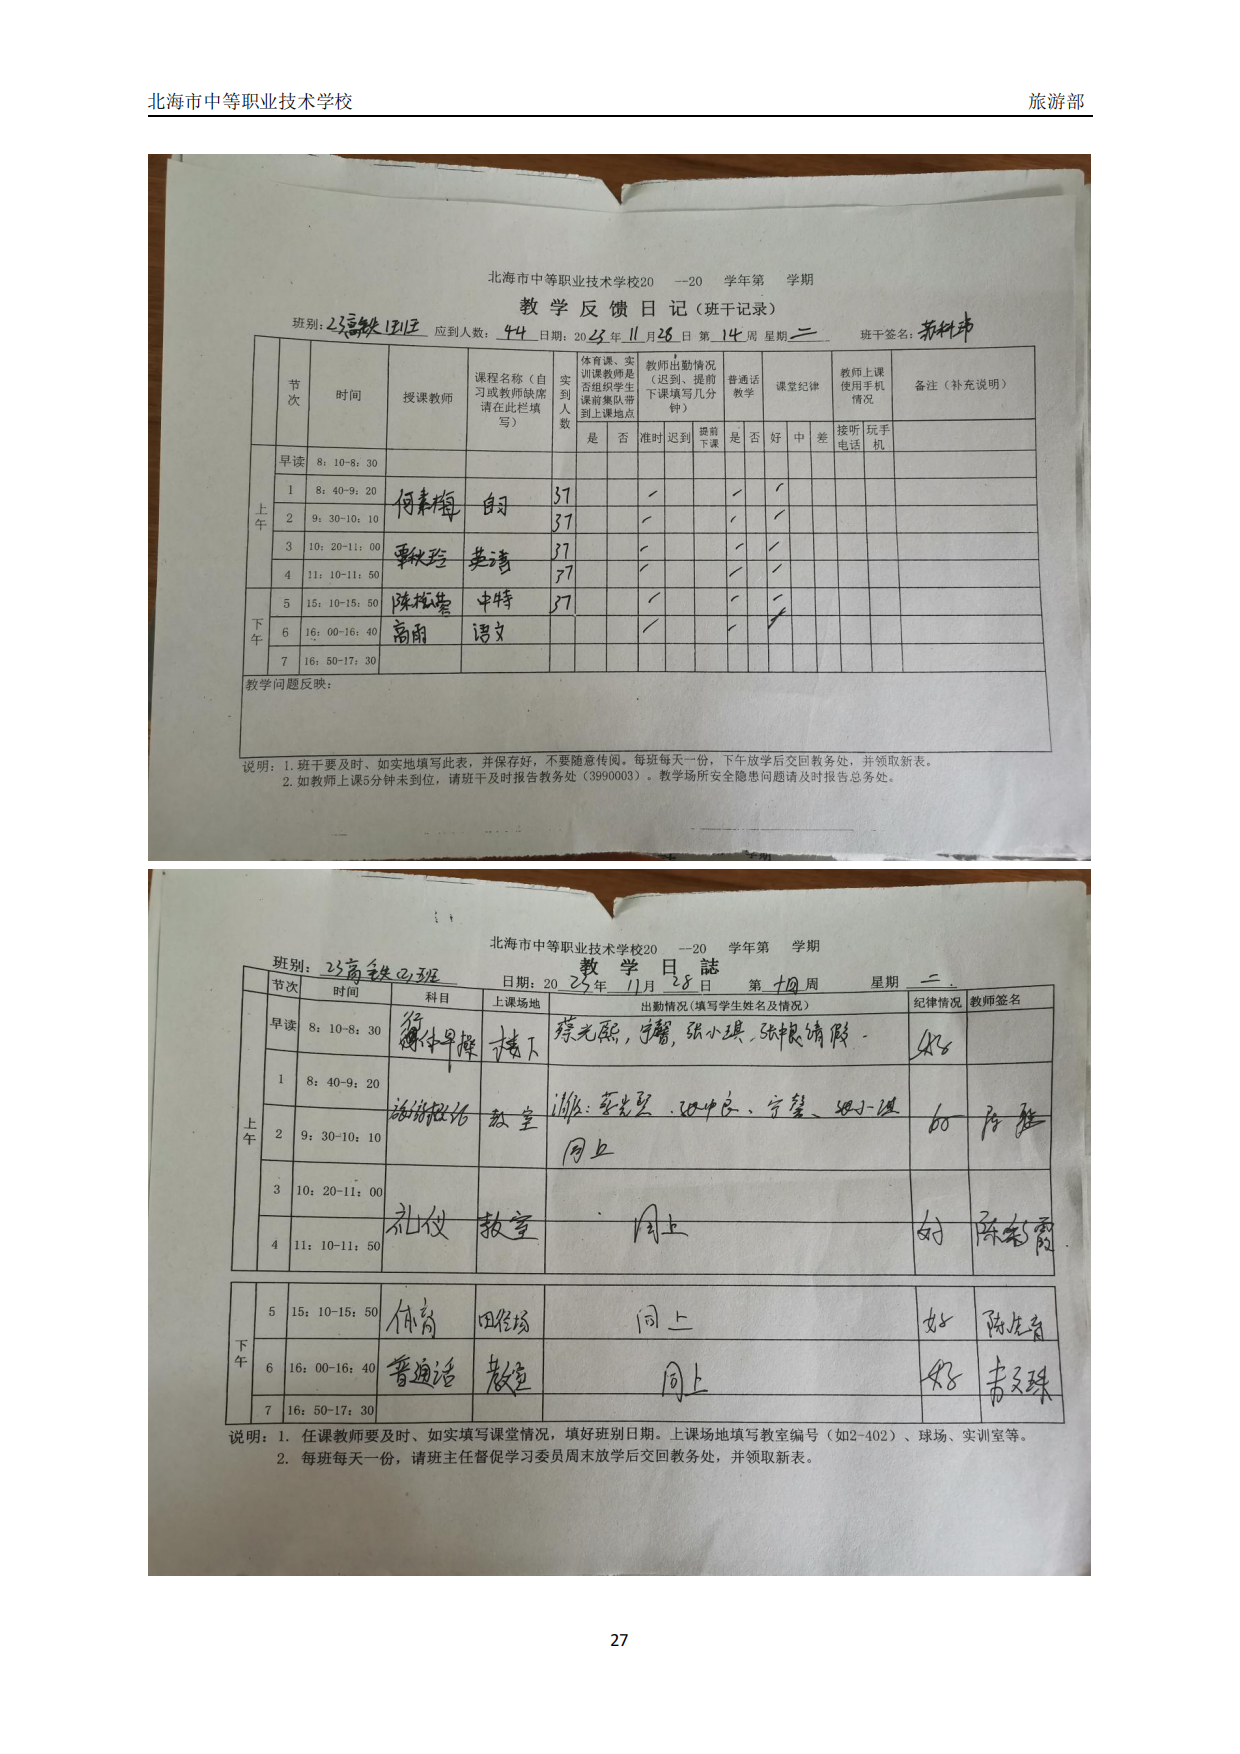 北海市中等职业技术学校 旅游部
北海市中等职业技术学校20 —20 学年第 学期
教 学 反 馈 日 记（班干记录）
班别：23高铁 应到人数：44 日期：2023年11月28日 第14周 星期二 班干签名：
节次 时间 授课教师 课程名称（自习或教师缺席请在此栏填写） 实到人数 体育课、实训课教师是否组织学生课前集队带到上课地点 教师出勤情况（迟到、提前下课填写几分钟） 普通话教学 课堂纪律 教师上课使用手机情况 备注（补充说明）
是 否 准时 迟到 提前下课 是 否 好 中 差 接听电话 玩手机
上午
早读 8：10-8：30
1 8：40-9：20 何素梅 自习 37
2 9：30-10：10 37
3 10：20-11：00 覃秋玲 英语 37
4 11：10-11：50 37
下午
5 15：10-15：50 中特 37
6 16：00-16：40 高雨 语文
7 16：50-17：30
教学问题反映：
说明：1.班干要及时、如实地填写此表，并保存好，不要随意传阅。每班每天一份，下午放学后交回教务处，并领取新表。
2.如教师上课5分钟未到位，请班干及时报告教务处（3990003）。教学场所安全隐患问题请及时报告总务处。
北海市中等职业技术学校20 —20 学年第 学期
教 学 日 誌
班别：23高铁(2)班 日期：2023年11月28日 第十四周 星期二
节次 时间 科目 上课场地 出勤情况(填写学生姓名及情况) 纪律情况 教师签名
上午
早读 8：10-8：30 早操 楼下 蔡光熙，宁馨，张小琪，张中良请假. 好
1 8：40-9：20 旅游概论 教室 蔡光熙、张中良、宁馨、张小琪 好
2 9：30-10：10 同上
3 10：20-11：00
4 11：10-11：50 礼仪 教室 同上 好 陈彩霞
下午
5 15：10-15：50 体育 田径场 同上 好
6 16：00-16：40 普通话 教室 同上 好
7 16：50-17：30
说明：1. 任课教师要及时、如实填写课堂情况，填好班别日期。上课场地填写教室编号（如2-402）、球场、实训室等。
2. 每班每天一份，请班主任督促学习委员周末放学后交回教务处，并领取新表。
27